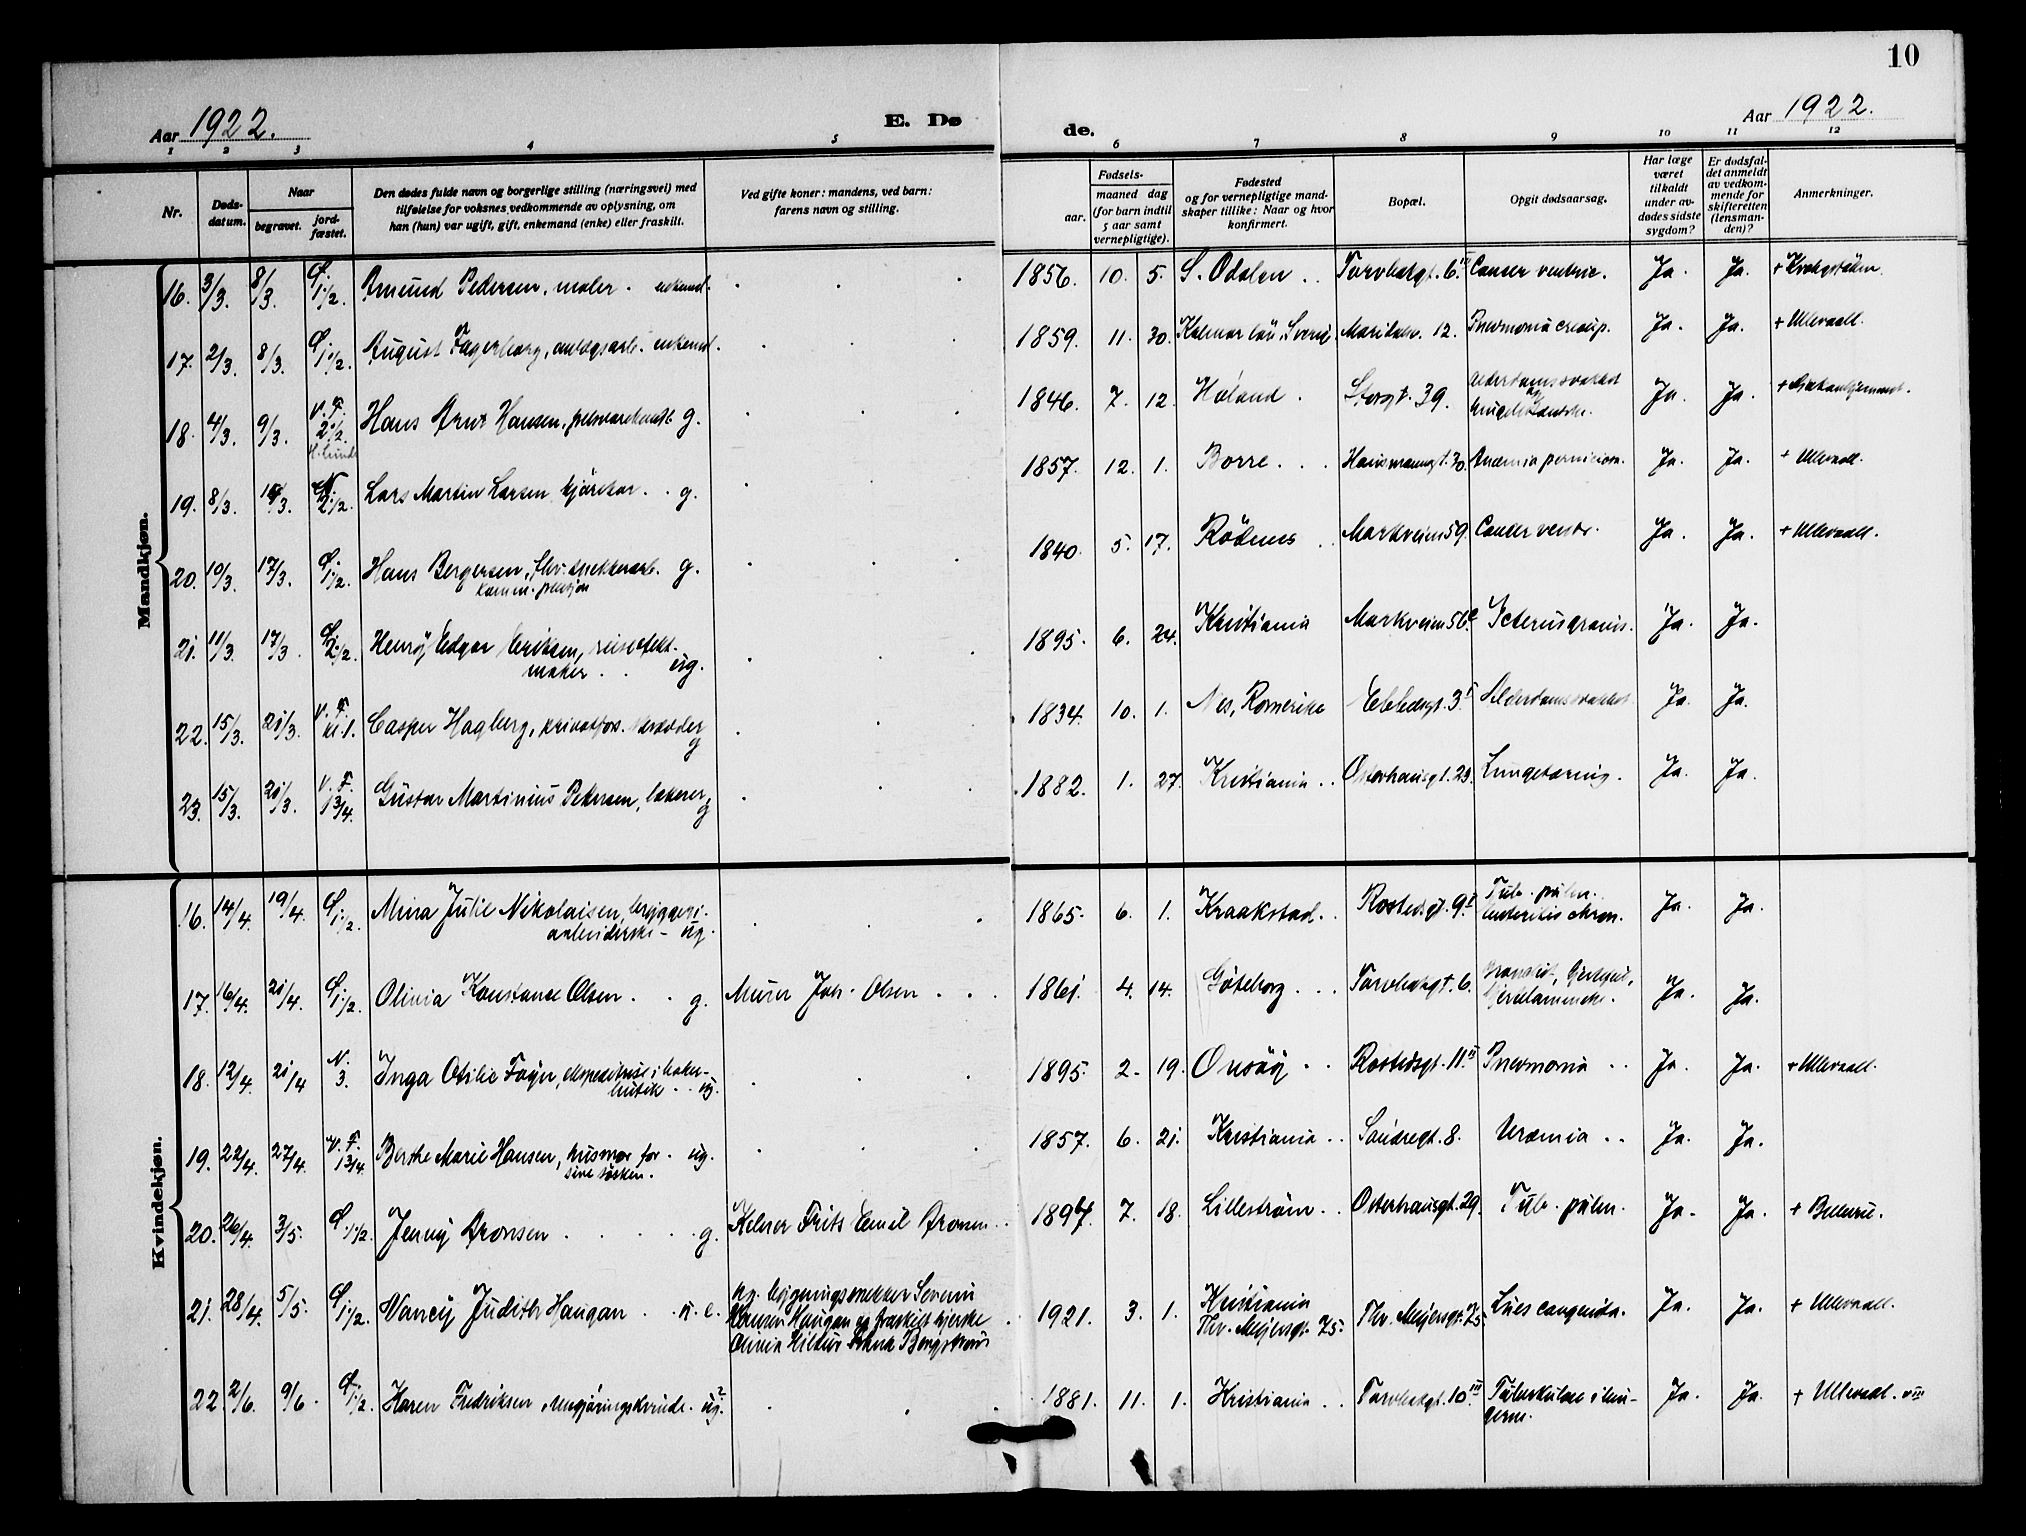 10
Aar 1922.
E. Dø
de.
Aar 1922.
1 2 3 4 5 6 7 8 9 10 11 12
Nr.
Døds-
datum.
Naar
begravet.
jord-
fæstet.
Den dødes fulde navn og borgerlige stilling (næringsvei) med
tilføielse for voksnes vedkommende av oplysning, om
han (hun) var ugift, gift, enkemand (enke) eller fraskilt.
Ved gifte koner: mandens, ved barn:
farens navn og stilling.
Fødsels-
aar.
maaned dag
(for barn indtil
5 aar samt
vernepligtige).
Fødested
og for vernepligtige mand-
skaper tillike: Naar og hvor
konfirmert.
Bopæl.
Opgit dødsaarsag.
Har læge
været
tilkaldt
under av-
dødes sidste
sygdom?
Er dødsfal-
det anmeldt
av vedkom-
mende for
skifteretten
(lensman-
den)?
Anmerkninger.
Mandkjøn.
16. 3/3. 8/3. 1 1/2. Amund Pedersen, maler. enkemd. 1856. 10. 5. S. Odalen Torvbakgt. 6 Cancer ventric. Ja. Ja.
17. 2/3. 8/3. August Fagerberg, anlægsarb. enkemd. 1859. 11. 30. Kalmar län, Sverig. Maridalsv. 12. Pneumonia croup. Ja. Ja. + Ullevaall.
18. 4/3. 9/3. V. F. 2 1/2. H. Lunde Hans Hansen, g. 1846. 7. 12. Høland. Storgt. 39. Alderdomssvakhet og Ja. Ja.
19. 8/3. 2 1/2. Lars Martin Larsen kjørekar. g. 1857. 12. 1. Borre. Hausmannsgt. 30. Anæmia perniciosa. Ja. Ja. + Ullevaall.
20. 10/3. 17/3. 1 1/2. Hans Bergersen, g. 1840. 5. 17. Rødenes Markveien 59. Cancer ventr. Ja. Ja. + Ullevaall.
komm. pension
21. 11/3. 17/3. 2 1/2. Henry Edgar Eriksen, reiseefekt- 1895. 6. 24. Kristiania Markveien 56 Icterus gravis. Ja. Ja.
maker ug.
22. 15/3. 21/3. V. F. kl. 1. Casper Hagberg, g 1834. 10. 1. Nes, Romerike 3 Alderdomssvakhet Ja. Ja.
23. 15/3. 21/3. V. F. 1 3/4. Gustav Martinius Pedersen, lakerer g 1882. 1. 27. Kristiania Osterhausgt. 29. Lungetæring. Ja. Ja.
Kvindekjøn.
16. 14/4. 19/4. 1 1/2. Mina Julie Nikolaisen, bryggeri- 1865. 6. 1. Kraakstad. Rostedsgt. 9 Tub. pulm. Ja. Ja.
arbeiderske - ug. enteritis chron.
17. 16/4. 21/4. 1 1/2. Olivia Konstanse Olsen g. Murer Joh. Olsen 1861. 4. 14. Göteborg Torvbakgt. 6. Hjertelammelse. Ja. Ja.
18. 12/4. 21/4 N. 3. Inga Otilie Foyn, ekspeditrise i baker- 1895. 2. 19. Onsøy Rostedsgt. 11 III Pneumonia Ja. Ja. + Ullevaall.
butik ug.
19. 22/4. 27/4. V. F. 1 3/4. Berthe Marie Hansen, husmor for ug. 1857. 6. 21. Kristiania Søndregt. 8. Uræmia Ja. Ja.
sine søsken.
20. 26/4. 3/5. 1 1/2. Jenny Aronsen g. Kelner Frits Emil Aronsen 1894. 7. 18. Lillestrøm Osterhausgt. 29. Tub. pulm. Ja. Ja.
21. 28/4. 5/5. 1 1/2. Nancy Judith Haugan u. e. Ug. bygningssnekker Severin 1921. 3. 1. Kristiania Thv. Meyersgt. 75 Lues congenita. Ja. Ja. + Ullevaall.
Hansen Haugan og fraskilt Thv. Meyersgt. 75.
Olivia Bergstrøm
22 2/6. 9/6. 1 1/2. Karen Fredriksen, rengjøringskvinde. ug.? 1881. 11. 1. Kristiania Torvbakgt. 10 III Tuberkulose i lun- Ja. Ja. + Ullevaal. VIII
gerne.